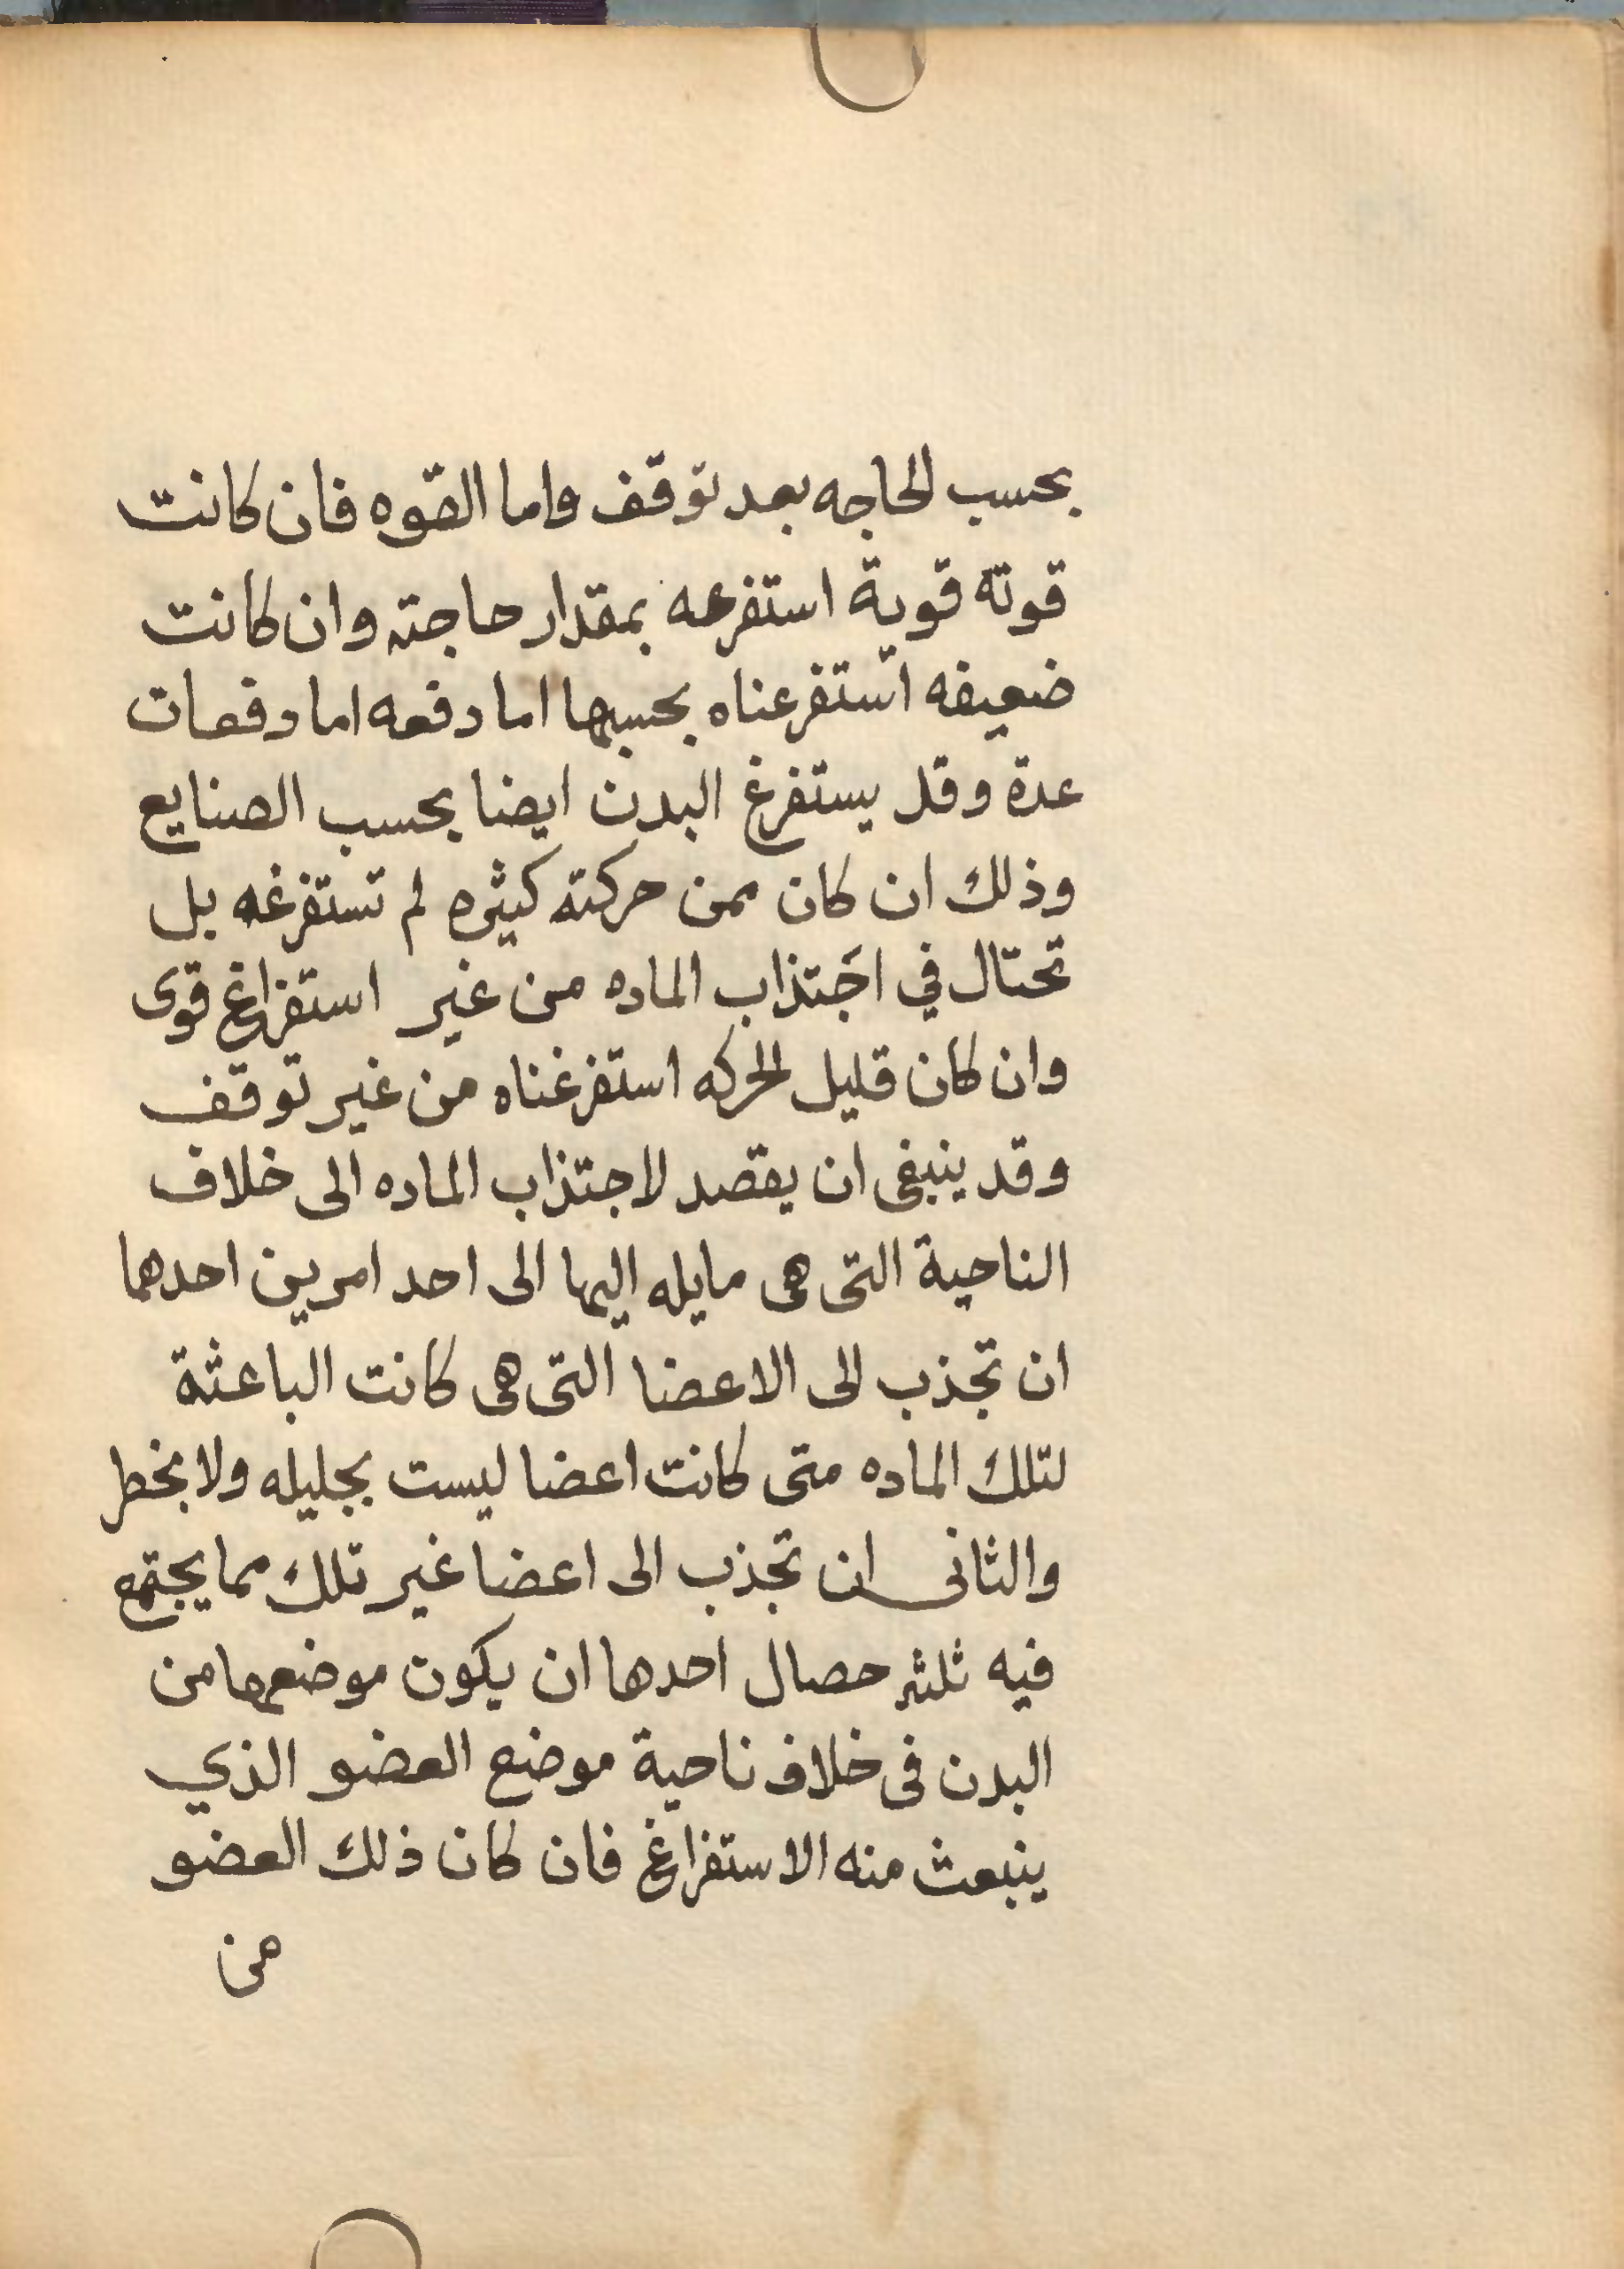 بحسب الحاجه بعد توقف واما القوه فان كانت
قوته قوية استفرعه بمقدار حاجته وان كانت
ضعيفه استفرعناه بحسبها اما دفعه اما دفعات
عدة وقد يستفرغ البدن ايضا بحسب الصنايع
وذلك ان كان ممن حركته كثيره لم تستفرغه بل
تحتال في اجَتذاب الماده من غير استفراغ قوى
وان كان قليل الحركه استفرغناه من غير توقف
وقد ينبغى ان يقصد لاجتذاب الماده الى خلاف
الناحية التى هى مايله اليها الى احد امرين احدهما
ان تجذب الى الاعضا التى هى كانت الباعثة
لتلك الماده متى كانت اعضا ليست بجليله ولا بخطر
والثانى ان تجذب الى اعضا غير تلك مما يجتمع
فيه ثلثه حصال احدها ان يكون موضعها من
البدن فى خلاف ناحية موضع العضو الذي
ينبعث منه الاستفراغ فان كان ذلك العضو
من